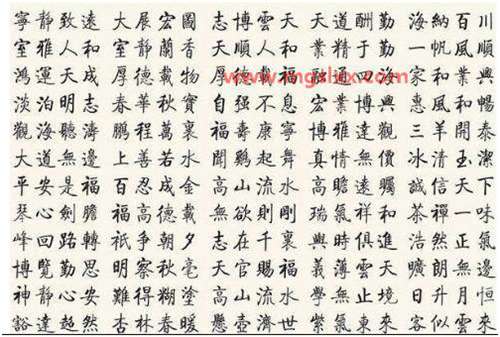 寧靜致遠 大展宏圖 志博雲天 天道酬勤 海納百川
室雅人和 室靜蘭香 順人和 業精于勤 一帆風順
鴻運天成 厚德載物 厚德載 四海 家和業興
淡泊明志 春華秋實 自强不息 宏業博興 惠風和暢
觀海聽濤 鵬程萬裏 福壽康寧 博雅達觀 三羊開泰
大道無邊 上善若水 聞鷄起舞 真情無價 冰清玉潔
平安是福 百忍成金 高山流水 高瞻遠矚 誠信天下
琴心劍膽 福高德載 無欲則剛 瑞氣祥和 茶禪一味
峰回路轉 祇争朝夕 志在千裏 與時俱進 浩然正氣
博覽勤思 明察秋毫 天官賜福 義薄雲天 曠朗無邊
神靜心安 難得糊塗 高山流水 學無止境 日升月恒
豁達超然 杏林春暖 懸壺濟世 紫氣東來 客似雲來